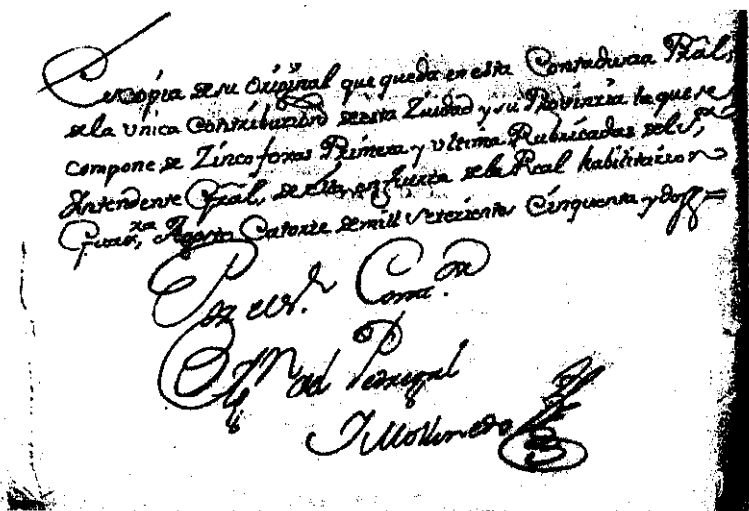 Es copia de su original que queda en esta Contaduria Pral,
de la Vnica Contribucion de esta Ziudad y su Provinzia la que se
compone de Zinco foxas Primera y vltima Rubricadas del Sr,
Intendente Gral, de ella, en fuerza de la Real habilitazion
Agosto Catorze de mill setezientos Cinquenta y dos =
Por el Sr. Cont.or
del Pedregal
Mollinedo